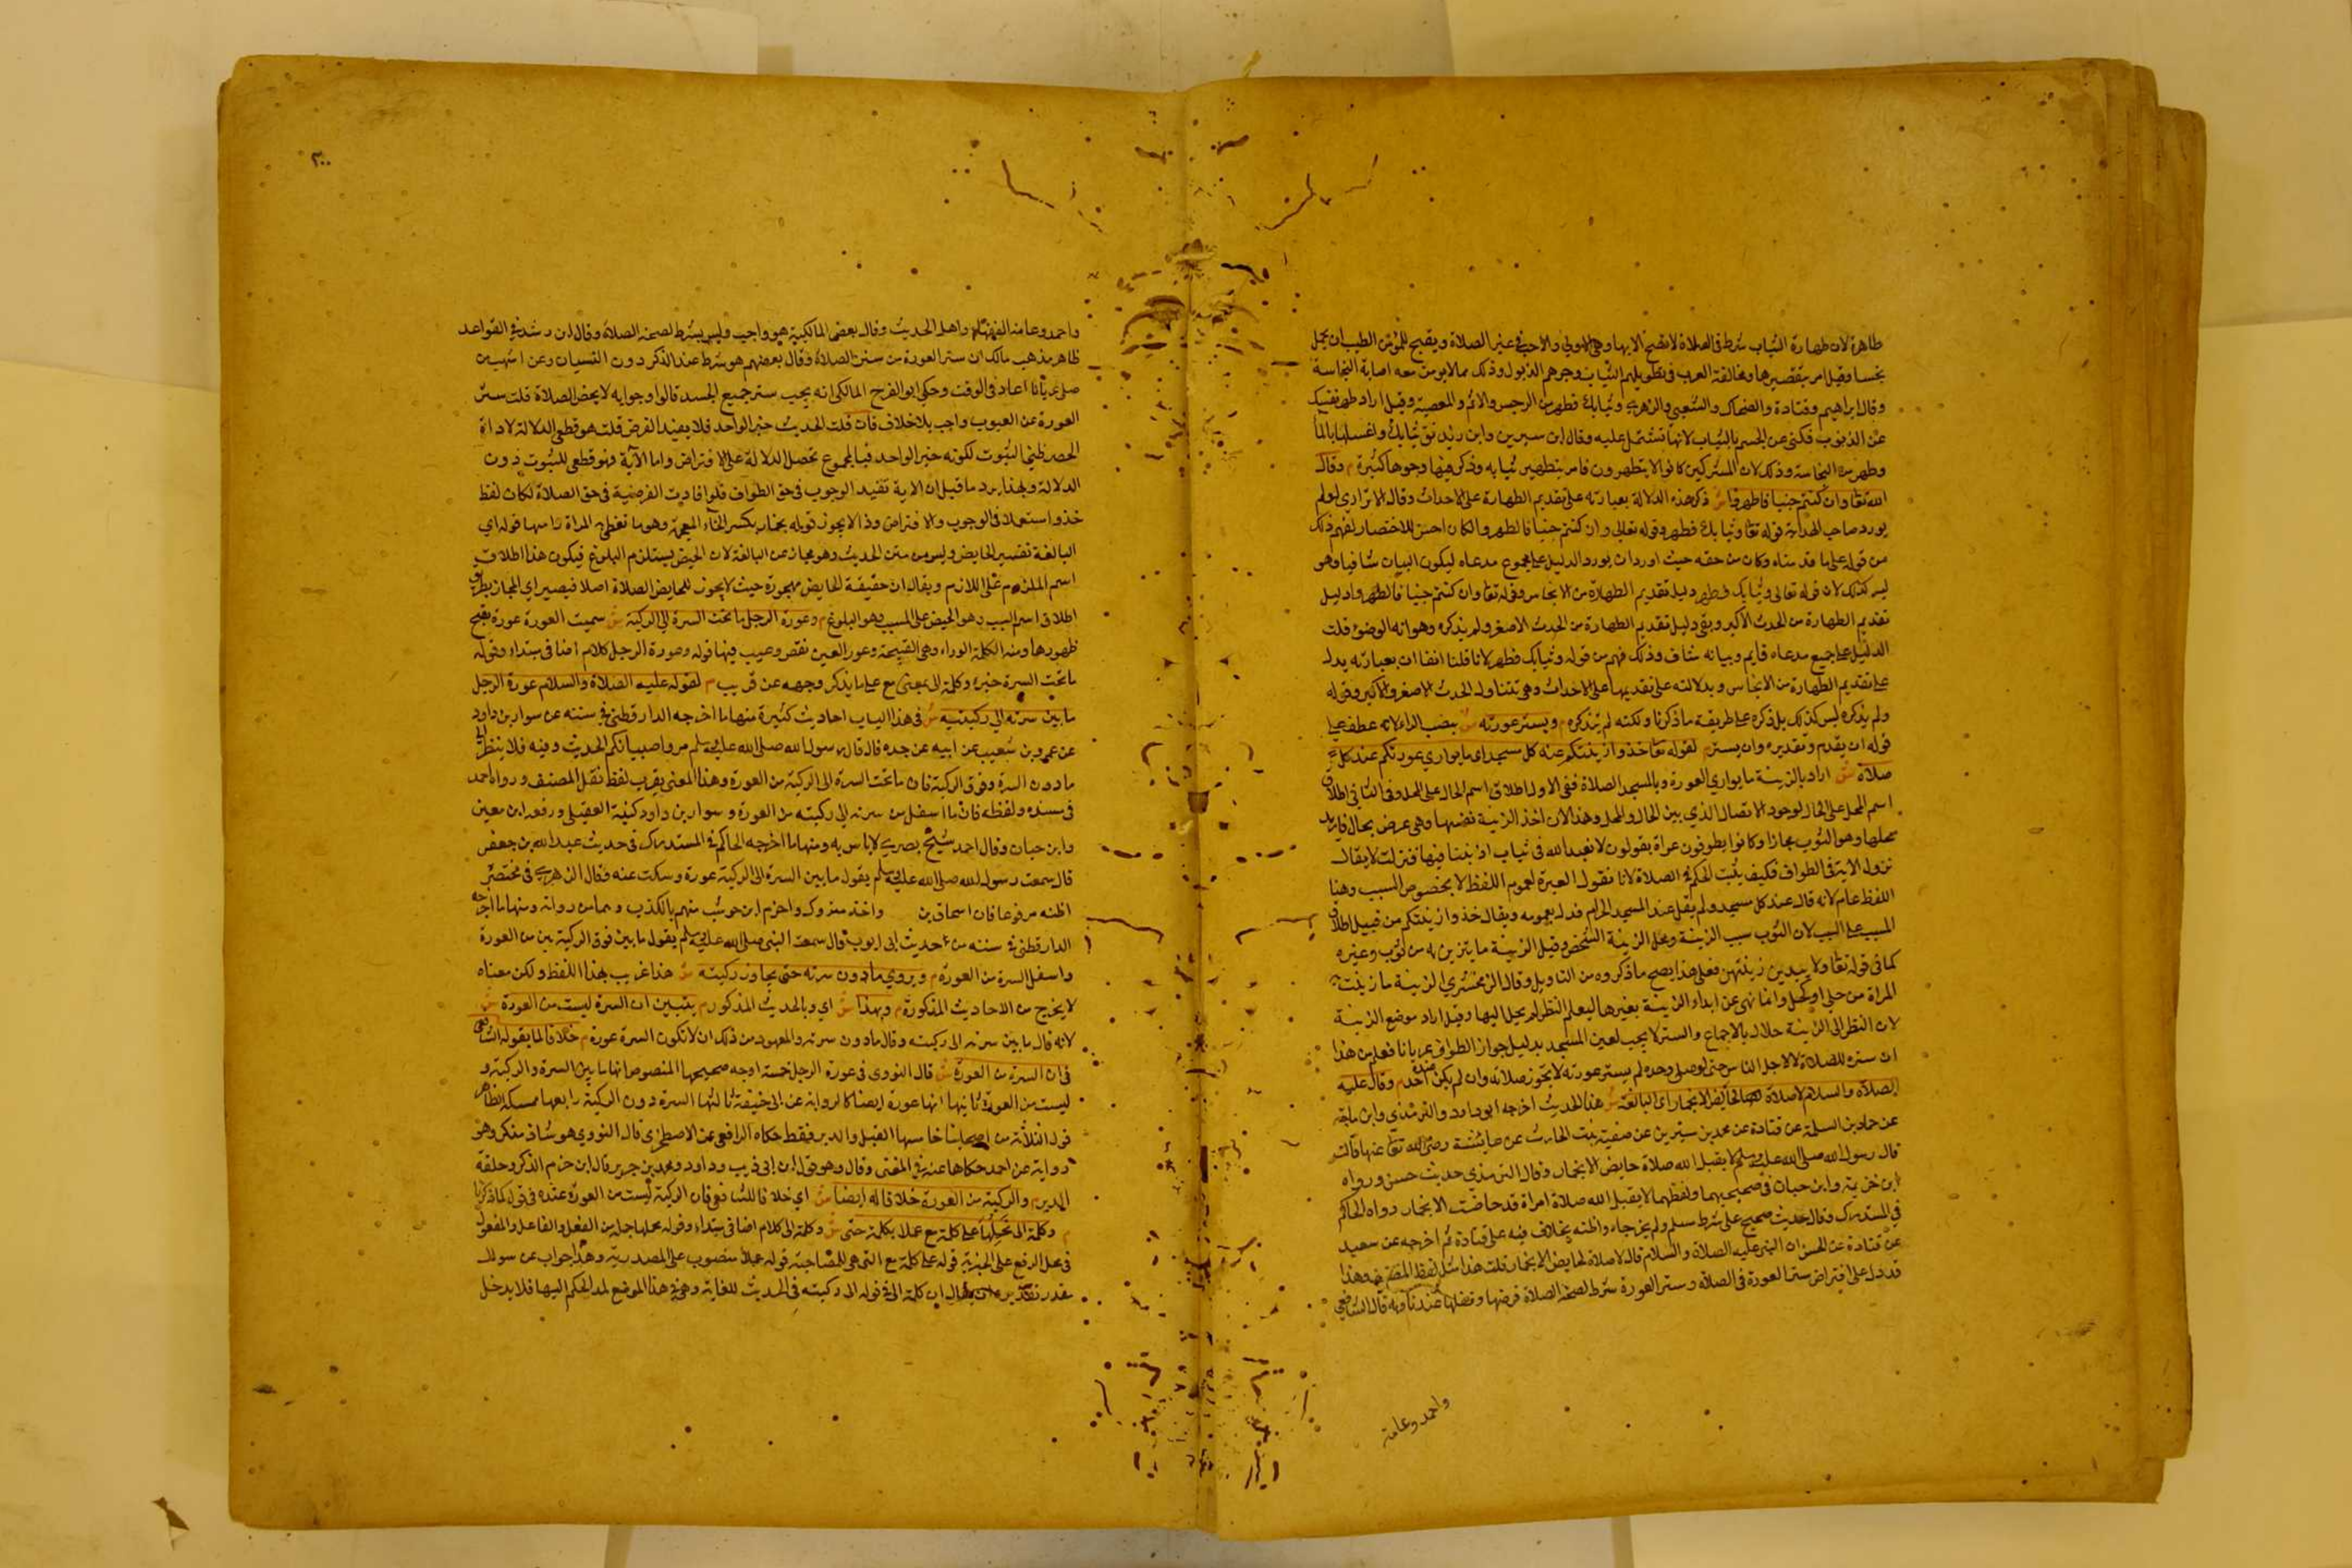 طاهرة لان طهارة الثياب شرط في الصلاة لا تصح الا بها وهي الاولى والاحب في غير الصلاة ويقبح للمؤمن الطيب ان يحمل
نجسا وقيل امر بتقصيرها ومخالفة العرب في تطويلهم الثياب وجرهم الذيول وذلك مما لا يؤمن معه اصابة النجاسة
وقال ابراهيم وقتادة والضحاك والشعبي والزهري وثيابك فطهر من الرجس والاثم والمعصية وقيل اراد طهر نفسك
عن الذنوب فكنى عن الجسم بالثياب لانها تشتمل عليه وقال ابن سيرين وابن زيد نق ثيابك واغسلها بالماء
وطهر من النجاسة وذلك لان المشركين كانوا لا يتطهرون فامر بتطهير ثيابه وذكر فيها وجوها كثيرة م وقال
الله تعا وان كنتم جنبا فاطهروا ش ذكر هذه الدلالة بعبارته على تقديم الطهارة على الاحداث وقال الاترازي لو لم
يورد صاحب الهداية قوله تعا وثيابك فطهر وقوله تعالى وان كنتم جنبا فاطهروا لكان احسن للاختصار لفهم ذلك
من قوله على ما قدمناه وكان من حقه حيث اورد ان يورد الدليل على مجموع مدعاه ليكون البيان شافيا وهو
ليس كذلك لان قوله تعالى وثيابك فطهر دليل تقديم الطهارة من الانجاس وقوله تعا وان كنتم جنبا فاطهروا دليل
تقديم الطهارة من الحدث الاكبر وبقي دليل تقديم الطهارة من الحدث الاصغر ولم يذكره وهو اية الوضوء قلت
الدليل على جميع مدعاه قايم وبيانه شاف وذلك فهم من قوله وثيابك فطهر لانا قلنا انفا ان بعبارته يدل
على تقديم الطهارة من الانجاس وبدلالته على تقديمها على الاحداث وهي تتناول الحدث الاصغر والاكبر وقوله
ولم يذكره ليس كذلك بل ذكره على طريقة ما ذكرنا ولكنه لم يذكره م ويستر عورته ش بنصب الراء لانه عطف على
قوله ان يقدم وتقديره وان يستر م لقوله تعا خذوا زينتكم عند كل مسجد اي ما يواري عورتكم عند كل
صلاة ش اراد بالزينة ما يواري العورة وبالمسجد الصلاة ففي الاول اطلاق اسم الحال على المحل وفي الثاني اطلاق
اسم المحل على الحال لوجود الاتصال الذي بين الحال والمحل وهذا لان اخذ الزينة نفسها وهي عرض محال فاريد
محلها وهو الثوب مجازا وكانوا يطوفون عراة يقولون لا نعبد الله في ثياب اذنبنا فيها فنزلت لا يقال
نزول الاية في الطواف فكيف يثبت الحكم في الصلاة لانا نقول العبرة لعموم اللفظ لا بخصوص السبب وهنا
اللفظ عام لانه قال عند كل مسجد ولم يقل عند المسجد الحرام فدل بعمومه ويقال خذوا زينتكم من قبيل اطلاق
المسبب على السبب لان الثوب سبب الزينة ومحل الزينة الشخص وقيل الزينة ما يتزين به من ثوب وغيره
كما في قوله تعا ولا يبدين زينتهن فعلى هذا يصح ما ذكروه من التاويل وقال الزمخشري الزينة ما زينت به
المراة من حلي او كحل وانما نهى عن ابداء الزينة بغيرها ليعلم النظر لم يحل اليها وقيل اراد موضع الزينة
لان النظر الى الزينة حلال بالاجماع والستر لا يجب لعين المسجد بدليل جواز الطواف عريانا فعلم من هذا
ان ستره للصلاة لا لاجل الناس حتى لو صلى وحده لم يستر عورته لا تجوز صلاته وان لم يكن عنده احد م وقال عليه
الصلاة والسلام لا صلاة لحائض الا بخمار اي البالغة ش هذا الحديث اخرجه ابو داود والترمذي وابن ماجة
عن حماد بن السلمة عن قتادة عن محمد بن سيرين عن صفية بنت الحارث عن عايشة رضي الله تعا عنها قالت
قال رسول الله صلى الله عليه وسلم لا يقبل الله صلاة حايض الا بخمار وقال الترمذي حديث حسن ورواه
ابن خزيمة وابن حبان في صحيحيهما ولفظهما لا يقبل الله صلاة امراة قد حاضت الا بخمار رواه الحاكم
في المستدرك وقال حديث صحيح على شرط مسلم ولم يخرجاه واظنه بخلاف فيه على قتادة ثم اخرجه عن سعيد
عن قتادة عن الحسن ان النبي عليه الصلاة والسلام قال لا صلاة لحايض الا بخمار قلت هذا مثل لفظ المصنف وهذا
قد دل على افتراض ستر العورة في الصلاة وستر العورة شرط لصحة الصلاة فرضها ونفلها عندنا وبه قال الشافعي
واحمد وعامة
٢٠٠
واحمد وعامة الفقهاء واهل الحديث وقال بعض المالكية هو واجب وليس بشرط لصحة الصلاة وقال ابن رشد في القواعد
ظاهر مذهب مالك ان ستر العورة من سنن الصلاة وقال بعضهم هو شرط عند الذكر دون النسيان وعن اشهب من
صلى عريانا اعاد في الوقت وحكى ابو الفرج المالكي انه يجب ستر جميع الجسد قالوا وجوابه لا يخص الصلاة قلت ستر
العورة عن العيوب واجب بلا خلاف فان قلت الحديث خبر الواحد فلا يفيد الفرض قلت هو قطعي الدلالة لاداة
الحصر ظني الثبوت لكونه خبر الواحد فبالمجموع تحصل الدلالة على الافتراض واما الآية فهو قطعي للثبوت دون
الدلالة وبهذا يرد ما قيل ان الاية تفيد الوجوب في حق الطواف فلو افادت الفرضية في حق الصلاة لكان لفظ
خذوا مستعملا في الوجوب والافتراض وذا لا يجوز قوله بخمار بكسر الخاء المعجمة وهو ما تغطي المراة راسها قوله اي
البالغة تفسير الحايض وليس من متن الحديث وهو مجاز عن البالغة لان الحيض يستلزم البلوغ فيكون هذا اطلاق
اسم الملزوم على اللازم ويقال ان حقيقة الحايض مهجورة حيث لا يجوز للحايض الصلاة اصلا فيصير اي المجاز بطريق
اطلاق اسم السبب وهو الحيض على المسبب وهو البلوغ م وعورة الرجل ما تحت السرة الى الركبة ش سميت العورة عورة بقبح
ظهورها ومنه الكلمة العوراء وهي القبيحة وعور العين نقص وعيب فيها قوله وعورة الرجل كلام اضافي مبتداء وقوله
ما تحت السرة خبره وكلمة الى بمعنى مع على ما يذكر وجهه عن قريب م لقوله عليه الصلاة والسلام عورة الرجل
ما بين سرته الى ركبتيه ش في هذا الباب احاديث كثيرة منها ما اخرجه الدارقطني في سننه عن سوار بن داود
عن عمرو بن شعيب عن ابيه عن جده قال قال رسول الله صلى الله عليه وسلم مروا صبيانكم الحديث وفيه فلا ينظر الى
ما دون السرة وفوق الركبة فان ما تحت السرة الى الركبة من العورة وهذا المعنى يقرب لفظ نقل المصنف ورواه احمد
في مسنده ولفظه فان ما اسفل من سرته الى ركبته من العورة وسوار بن داود كنية العقيلي ورفعه ابن معين
وابن حبان وقال احمد شيخ بصري لا باس به ومنها ما اخرجه الحاكم في المستدرك في حديث عبد الله بن جعفر
قال سمعت رسول الله صلى الله عليه وسلم يقول ما بين السرة الى الركبة عورة وسكت عنه وقال الزهري في مختصره
اظنه مرفوعا فان اسحاق بن واخذ متروك واحزم ابن حوشب متهم بالكذب وهما من رواته ومنها ما اخرجه
الدارقطني في سننه من حديث ابي ايوب قال سمعت النبي صلى الله عليه وسلم يقول ما بين فوق الركبتين من العورة
واسفل السرة من العورة م ويروي ما دون سرته حتى يجاوز ركبته ش هذا غريب بهذا اللفظ ولكن معناه
لا يخرج من الاحاديث المذكورة م وبهذا ش اي وبالحديث المذكور م يتبين ان السرة ليست من العورة ش
لانه قال ما بين سرته الى ركبته وقال ما دون سرته والمعهود من ذلك ان لا تكون السرة عورة م خلافا لما يقوله الشافعي
في ان السرة من العورة ش قال النووي في عورة الرجل خمسة اوجه صحيحها المنصوص انها ما بين السرة والركبة و
ليست من العورة ثانيها انها عورة ايضا كالرواية عن ابي حنيفة ثالثها السرة دون الركبة رابعها عكسه ظاهر
قول الثلاثة من اصحابنا خامسها القبل والدبر فقط حكاه الرافعي عن الاصطخري قال النووي هو شاذ منكر وهو
رواية عن احمد حكاها عنه في المغني وقال وهو قول ابن ابي ذيب وداود ومحمد بن جرير قال ابن حزم الذكر وحلقة
الدبر م والركبة من العورة خلافا له ايضا ش اي خلافا للشافعي فان الركبة ليست من العورة عنده في قوله كما ذكرنا
م وكلمة الى تحملها على كلمة مع عملا بكلمة حتى ش وكلمة الى كلام اضافي مبتداء وقوله محلها جملة من الفعل والفاعل والمفعول
في محل الرفع على الخبرية قوله على كلمة مع التي هي للمصاحبة قوله عملا منصوب على المصدرية وهذا جواب عن سوال
مقدر تقديره ان يقال ان كلمة الى في قوله الى ركبته في الحديث للغاية وهي في هذا الموضع لمد الحكم اليها فلا يدخل